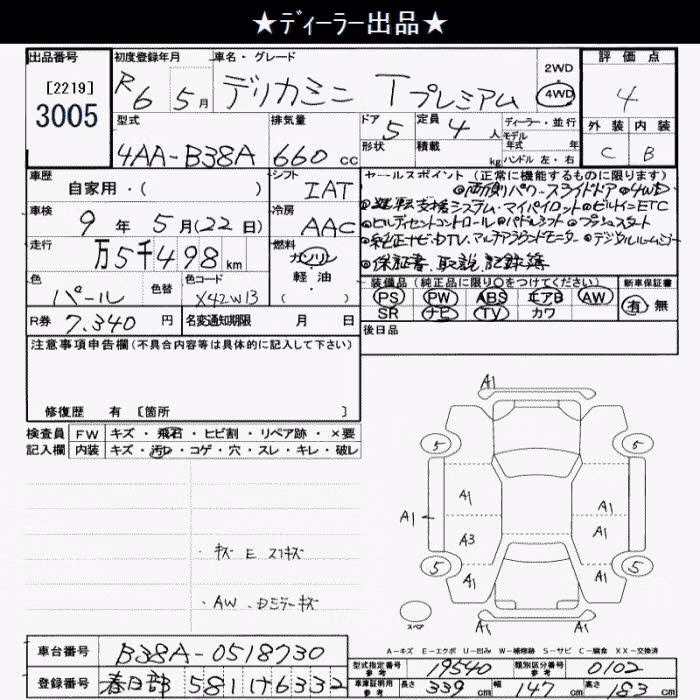 ★ディーラー出品★
出品番号 初度登録年月 車名・グレード 評価点
[2219] R6 5月 デリカミニ Tプレミアム 2WD 4WD 4
3005
型式 排気量 ドア 5 定員 4人 ディーラー・並行 外装 内装
モデル年式 年
4AA-B38A 660cc 形状 積載 kg ハンドル 左・右 C B
車歴 自家用・( ) シフト IAT
セールスポイント (正常に機能するものに限ります)
◎両側パワースライドドア ◎4WD
◎運転支援システム・マイパイロット ◎ビルトインETC
◎ヒルディセントコントロール ◎パドルシフト ◎プッシュスタート
◎純正ナビ・DTV、マルチアラウンドモニター ◎デジタルルームミラー
◎保証書、取説、記録簿
車検 9年 5月(22日) 冷房 AAC
走行 万5千498km 燃料 ガソリン・軽油・( )
色 パール 色替 色コード X42W13
装備品 (純正品に限り○をつけてください) 新車保証書
PS PW ABS エアB AW 有 無
SR ナビ TV カワ
R券 7,340円 名変通知期限 月 日
後日品
注意事項申告欄(不具合内容等は具体的に記入して下さい)
修復歴 有 [箇所 ]
検査員 FW キズ・飛石・ヒビ割・リペア跡・×要
記入欄 内装 キズ・汚レ・コゲ・穴・スレ・キレ・破レ
A1
5 5
A1 A1
A1 A1
A3
5 5
A1 A1
・キズ E スリキズ
・AW・Dミラーキズ
スペア
A1 A1
A-キズ E-エクボ U-凹み W-補修跡 S-サビ C-腐食 XX-交換済
車台番号 B38A-0518730
型式指定番号 参考 19540 類別区分番号 参考 0102
登録番号 春日部 581 け 6332
車庫証明用 参考 長さ 339cm 幅 147cm 高さ 183cm